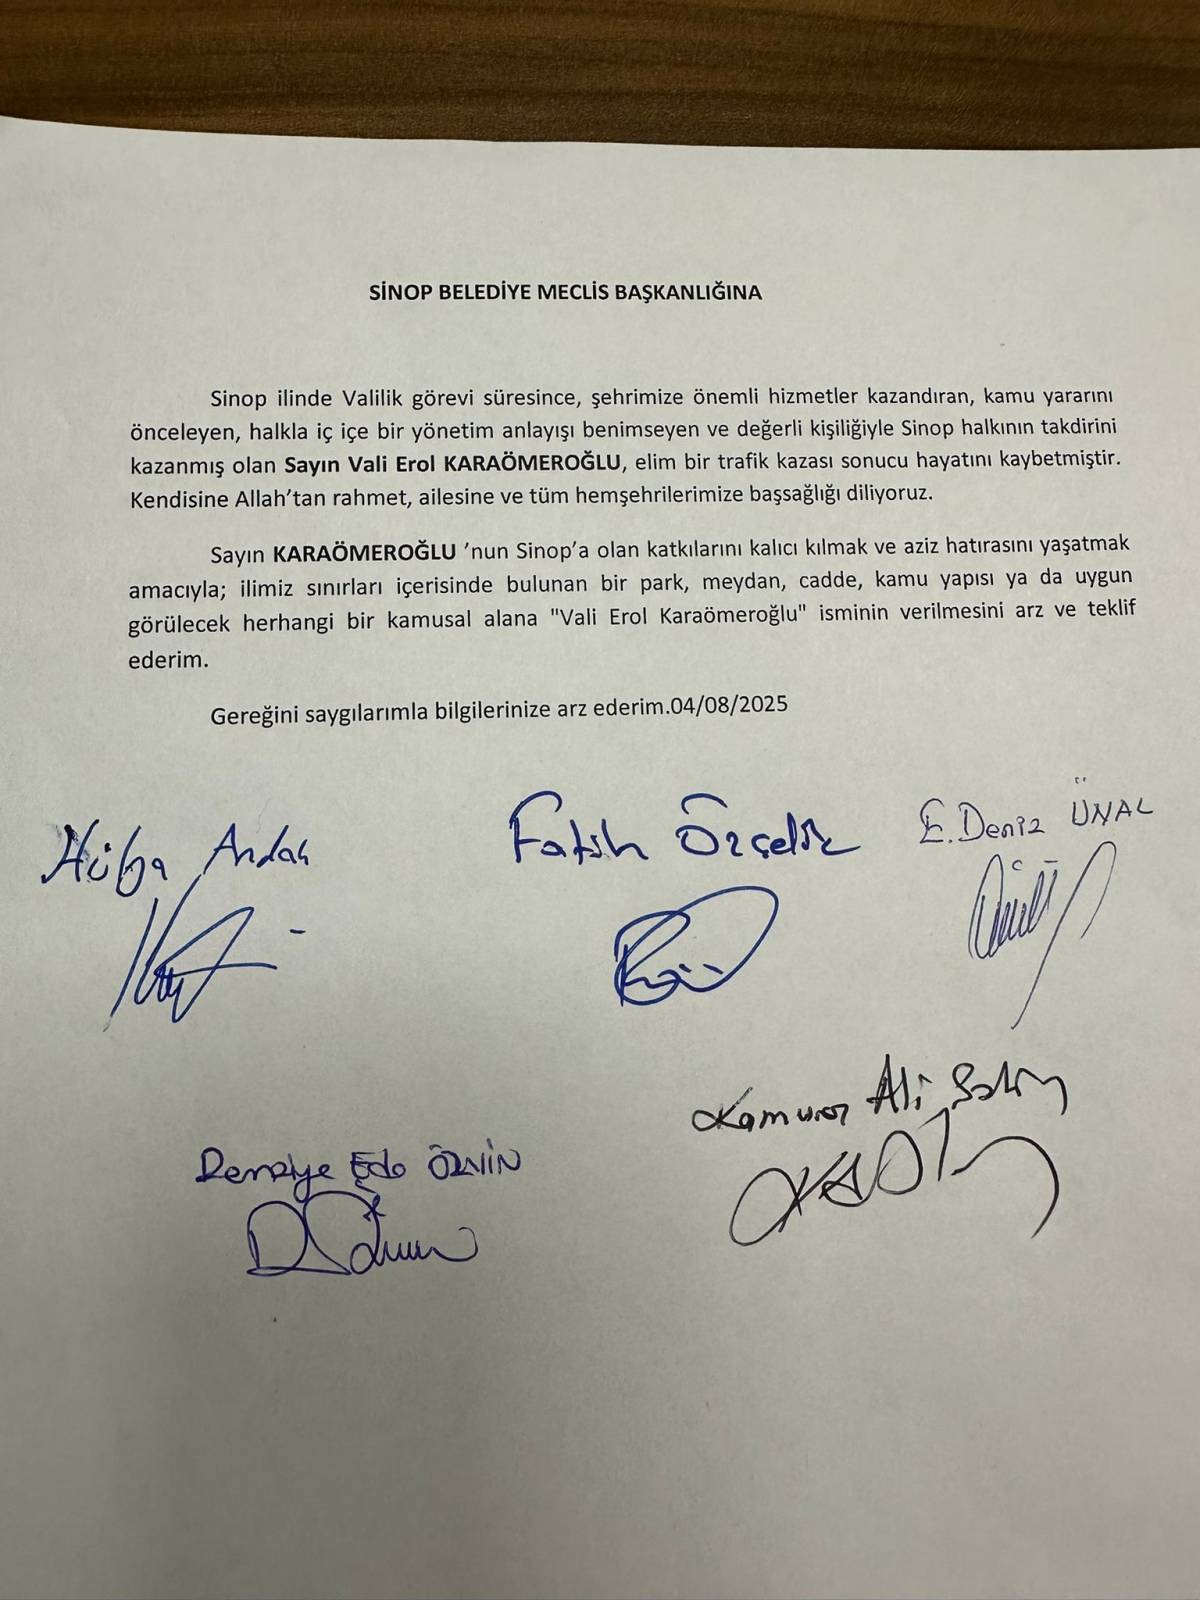 SİNOP BELEDİYE MECLİS BAŞKANLIĞINA
Sinop ilinde Valilik görevi süresince, şehrimize önemli hizmetler kazandıran, kamu yararını
önceleyen, halkla iç içe bir yönetim anlayışı benimseyen ve değerli kişiliğiyle Sinop halkının takdirini
kazanmış olan Sayın Vali Erol KARAÖMEROĞLU, elim bir trafik kazası sonucu hayatını kaybetmiştir.
Kendisine Allah’tan rahmet, ailesine ve tüm hemşehrilerimize başsağlığı diliyoruz.
Sayın KARAÖMEROĞLU ’nun Sinop’a olan katkılarını kalıcı kılmak ve aziz hatırasını yaşatmak
amacıyla; ilimiz sınırları içerisinde bulunan bir park, meydan, cadde, kamu yapısı ya da uygun
görülecek herhangi bir kamusal alana "Vali Erol Karaömeroğlu" isminin verilmesini arz ve teklif
ederim.
Gereğini saygılarımla bilgilerinize arz ederim.04/08/2025
Fatih Özçelik
E.Deniz ÜNAL
Ali